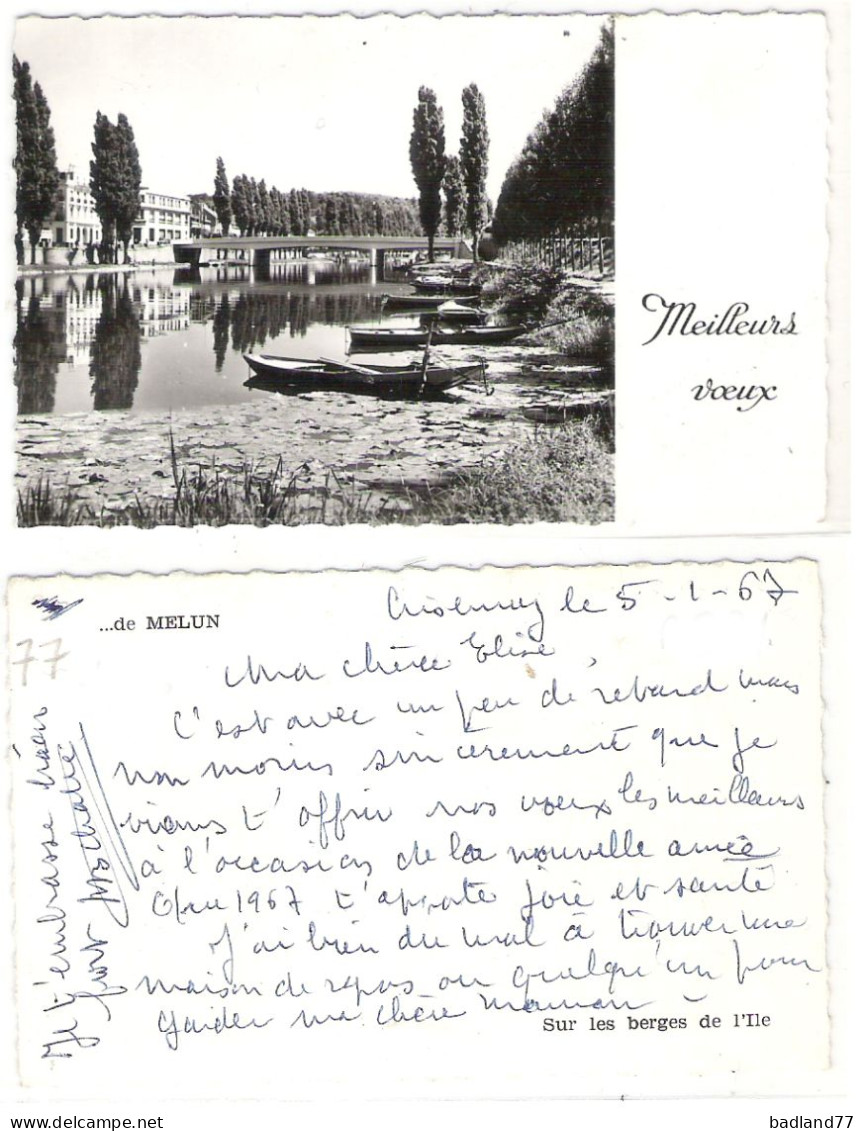 Meilleurs
vœux
...de MELUN
77
Crisenoy le 5-1-67
Ma chère Elise,
C'est avec un peu de retard mais
non moins sincèrement que je
viens t'offrir nos voeux les meilleurs
à l'occasion de la nouvelle année
Que 1967 t'apporte joie et santé
J'ai bien du mal à trouver une
maison de repos ou quelqu'un pour
garder ma chère maman
Sur les berges de l'Ile
Je t'embrasse bien
fort
badland77